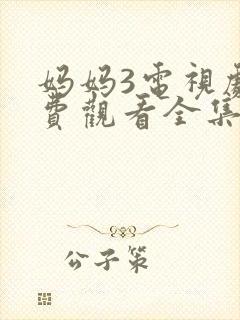 妈妈3電視劇
費觀看全集
公子策